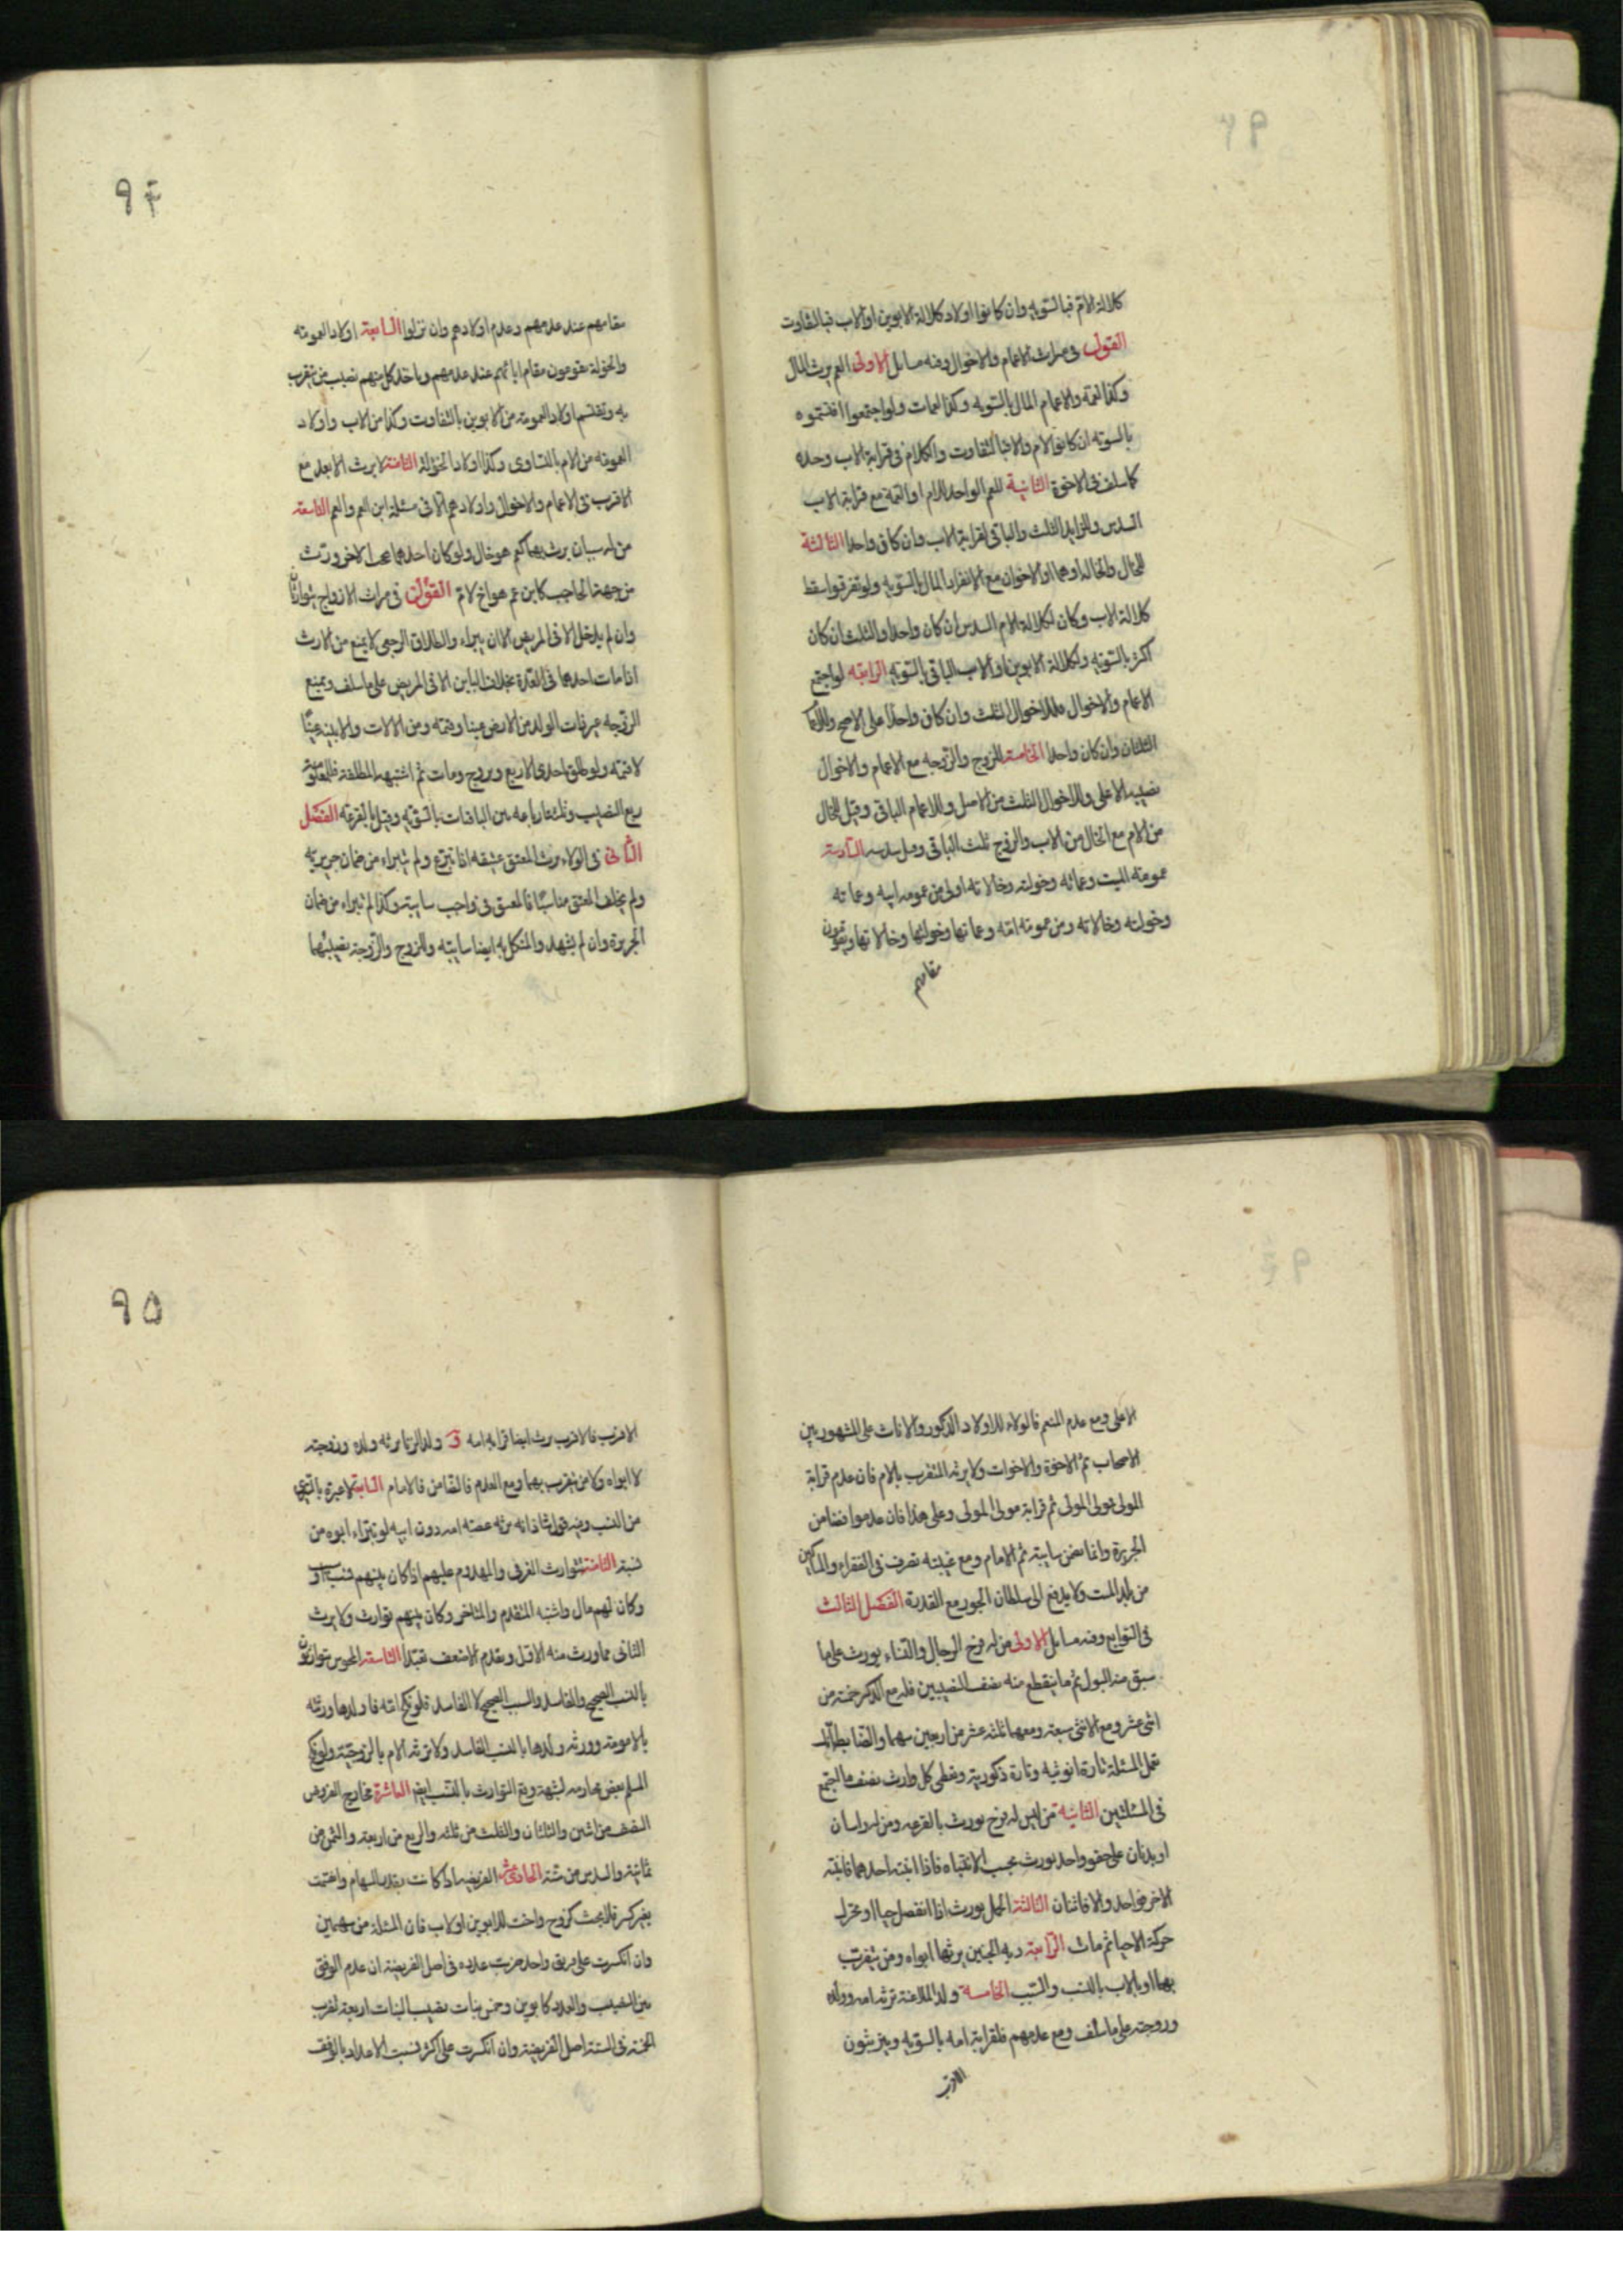 كلالة الام فبالسويه وان كانوا اولاد كلالة الابوين او الاب فبالتفاوت
القول فى ميراث الاعمام والاخوال وفيه مسايل الاولى العم يرث المال
وكذا العمة والاعمام المال بالسويه وكذا العمات ولو اجتمعوا اقتسموه
بالسويه ان كانوا لام والا فبالتفاوت والكلام فى قرابة الاب وحده
كما سلف فى الاخوة الثانية للعم الواحد للام او العمة مع قرابة الاب
السدس وللزايد الثلث والباقى لقرابة الاب وان كان واحدا الثالثة
للخال والخالة او هما او الاخوال مع الانفراد المال بالسويه ولو تفرقوا سقط
كلالة الاب وكان لكلالة الام السدس ان كان واحدا والثلث ان كان
اكثر بالسويه ولكلالة الابوين او الاب الباقى بالسويه الرابعه لو اجتمع
الاعمام والاخوال فللاخوال الثلث وان كان واحدا على الاصح وللاعمام
الثلثان وان كان واحدا الخامسة للزوج والزوجه مع الاعمام والاخوال
نصيبه الاعلى وللاخوال الثلث من الاصل وللاعمام الباقى وقيل للخال
من الام مع الخال من الاب والزوج ثلث الباقى وقيل سدسه السادسة
عمومة الميت وعماته وخولته وخالاته اولى من عمومه ابيه وعماته
وخولته وخالاته ومن عمومة امه وعماتها وخولتها وخالاتها ويقومون
مقامهم
٩٤
مقامهم عند عدمهم وعدم اولادهم وان نزلوا السابعة اولاد العمومه
والخولة يقومون مقام ابائهم عند عدمهم وياخذ كل منهم نصيب من يتقرب
به وتقتسم اولاد العمومة من الابوين بالتفاوت وكذا من الاب واولاد
العمومه من الام بالتساوى وكذا اولاد الخولة الثامنة لا يرث الابعد مع
الاقرب فى الاعمام والاخوال واولادهم الا فى مسئلة ابن العم والعم التاسعة
من له سببان يرث بهما كعم هو خال ولو كان احدهما يحجب الاخر ورث
من جهة الحاجب كابن عم هو اخ لام القول فى ميراث الازواج يتوارثان
وان لم يدخل الا فى المريض الا ان يبراء والطلاق الرجعى لا يمنع من الارث
اذا مات احدهما فى العدة بخلاف الباين الا فى المريض على ما سلف ويمنع
الزوجه غير ذات الولد من الارض عينا وقيمه ومن الالات والابنيه عينا
لا قيمه ولو طلق احدى الاربع وتزوج ومات ثم اشتبهت المطلقة فللمعلومة
ربع النصيب وثلثة ارباعه بين الباقيات بالسويه وقيل بالقرعه الفصل
الثانى فى الولاء يرث المعتق عتيقه اذا تبرع ولم يتبراء من ضمان جريرته
ولم يخلف المعتق مناسبا فالمعتق فى واجب سايبة وكذا لو تبراء من ضمان
الجريرة وان لم يشهد والمنكل به ايضا سايبه وللزوج والزوجة نصيبهما
الاعلى ومع عدم المنعم فالولاء للاولاد الذكور والاناث على المشهور بين
الاصحاب ثم الاخوة والاخوات ولا يرثه المتقرب بالام فان عدم قرابة
المولى فمولى المولى ثم قرابة مولى المولى وعلى هذا فان عدموا فضامن
الجريرة وانما يضمن سايبة ثم الامام ومع غيبته تصرف فى الفقراء والمساكين
من بلد الميت ولا يدفع الى سلطان الجور مع القدرة الفصل الثالث
فى التوابع وفيه مسايل الاولى من له فرج الرجال والنساء يورث على ما
سبق منه البول ثم ما ينقطع منه نصف النصيبين فله مع الذكر خمسة من
اثنى عشر ومع الانثى سبعة ومعهما ثلثة عشر من اربعين سهما والضابط انك
تعمل المسئلة تارة انوثيه وتارة ذكورية وتعطى كل وارث نصف ما اجتمع
فى المسئلتين الثانية من ليس له فرج يورث بالقرعه ومن له راسان
او بدنان على حقو واحد يورث بحسب الانتباه فاذا انتبه احدهما فانتبه
الاخر فواحد والا فاثنان الثالثة الحمل يورث اذا انفصل حيا او تحرك
حركة الاحيا ثم مات الرابعة دية الجنين يرثها ابواه ومن يتقرب
بهما او بالاب بالنسب والسبب الخامسة ولد الملاعنة ترثه امه وولده
وزوجته على ما سلف ومع عدمهم فلقرابة امه بالسويه ويترثون
الاقرب
٩٥
الاقرب فالاقرب يرث ايضا قرابة امه و ولد الزنا يرثه ولده وزوجته
لا ابواه ولا من يتقرب بهما ومع العدم فالضامن فالامام السابعة لا عبرة بالتبرى
من النسب وفيه قول شاذ انه يرثه عصبة امه دون ابيه لو تبراء ابوه من
نسبه الثامنة يتوارث الغرقى والمهدوم عليهم اذا كان بينهم نسب او
وكان لهم مال واشتبه المتقدم والمتاخر وكان بينهم توارث ولا يرث
الثانى مما ورث منه الاول ويقدم الاضعف تعبدا التاسعة المجوس يتوارثون
بالنسب الصحيح والفاسد والسبب الصحيح لا الفاسد فلو نكح امه فاولدها ورثته
بالامومة وورثه ولدها بالنسب الفاسد ولا ترثه الام بالزوجية ولو نكح
المسلم بعض محارمه لشبهة وقع التوارث بالنسب ايضا العاشرة مخارج الفروض
النصف من اثنين والثلثان والثلث من ثلثه والربع من اربعة والثمن من
ثمانية والسدس من ستة الحادية عشر الفريضه اذا كانت بقدر السهام وانقسمت
بغير كسر فلا بحث كزوج واخت للابوين او لاب فان المسئلة من سهمين
وان انكسرت على فريق واحد ضربت عدده فى اصل الفريضة ان عدم الوفق
بين النصيب والعدد كابوين وخمس بنات نصيب البنات اربعة تضرب
الخمسة فى الستة اصل الفريضة وان انكسرت على اكثر نسبت الاعداد بالوفق